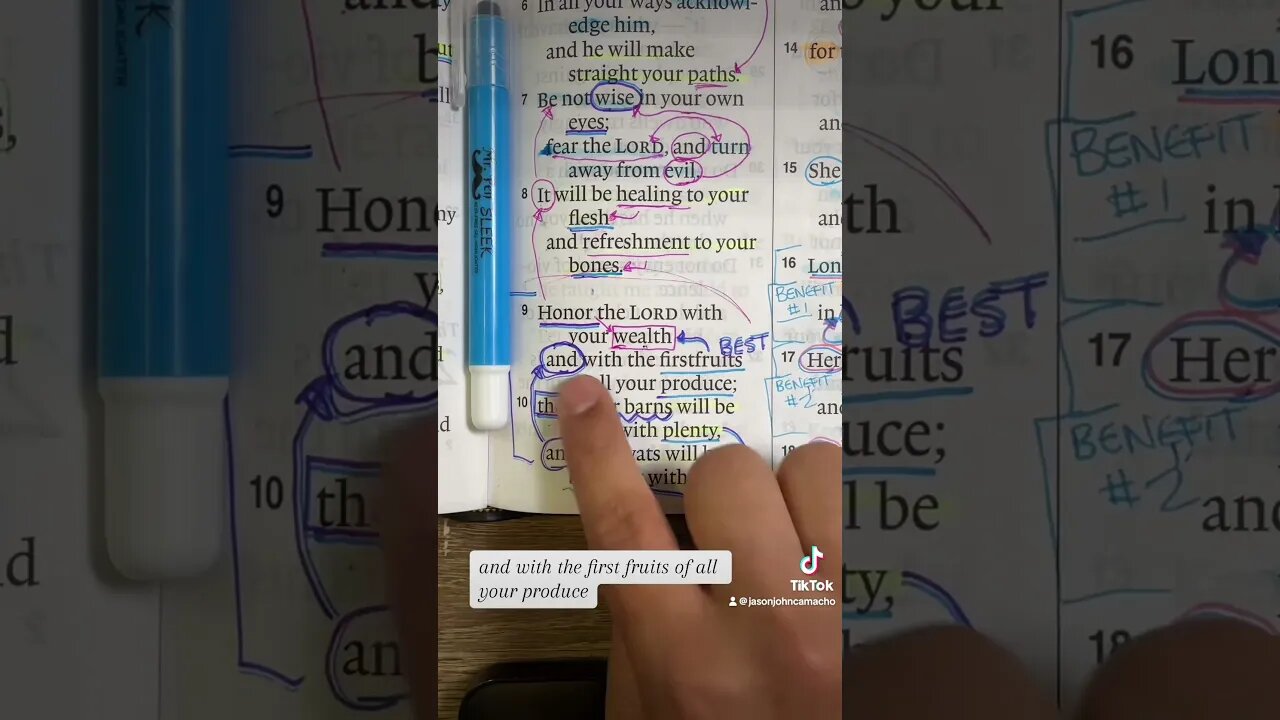 6 In all your ways acknowl-
edge him,
and he will make
straight your paths.
7 Be not wise in your own
eyes;
fear the LORD, and turn
away from evil.
8 It will be healing to your
flesh
and refreshment to your
bones.
9 Honor the LORD with
your wealth
BEST
and with the firstfruits
all your produce;
10 barns will be
with plenty,
vats will
with
14 for
15 She
16 Lon
BENEFIT
#1
in
17 Her
BENEFIT
#2
18
MR. PEN SLEEK
and with the first fruits of all
your produce
TikTok
@jasonjohncamacho
9 Hono
and
10 th
an
16 Lon
BENEFIT
#1
in
BEST
17 Her
ruits
uce;
BENEFIT
#2
l be
and
18